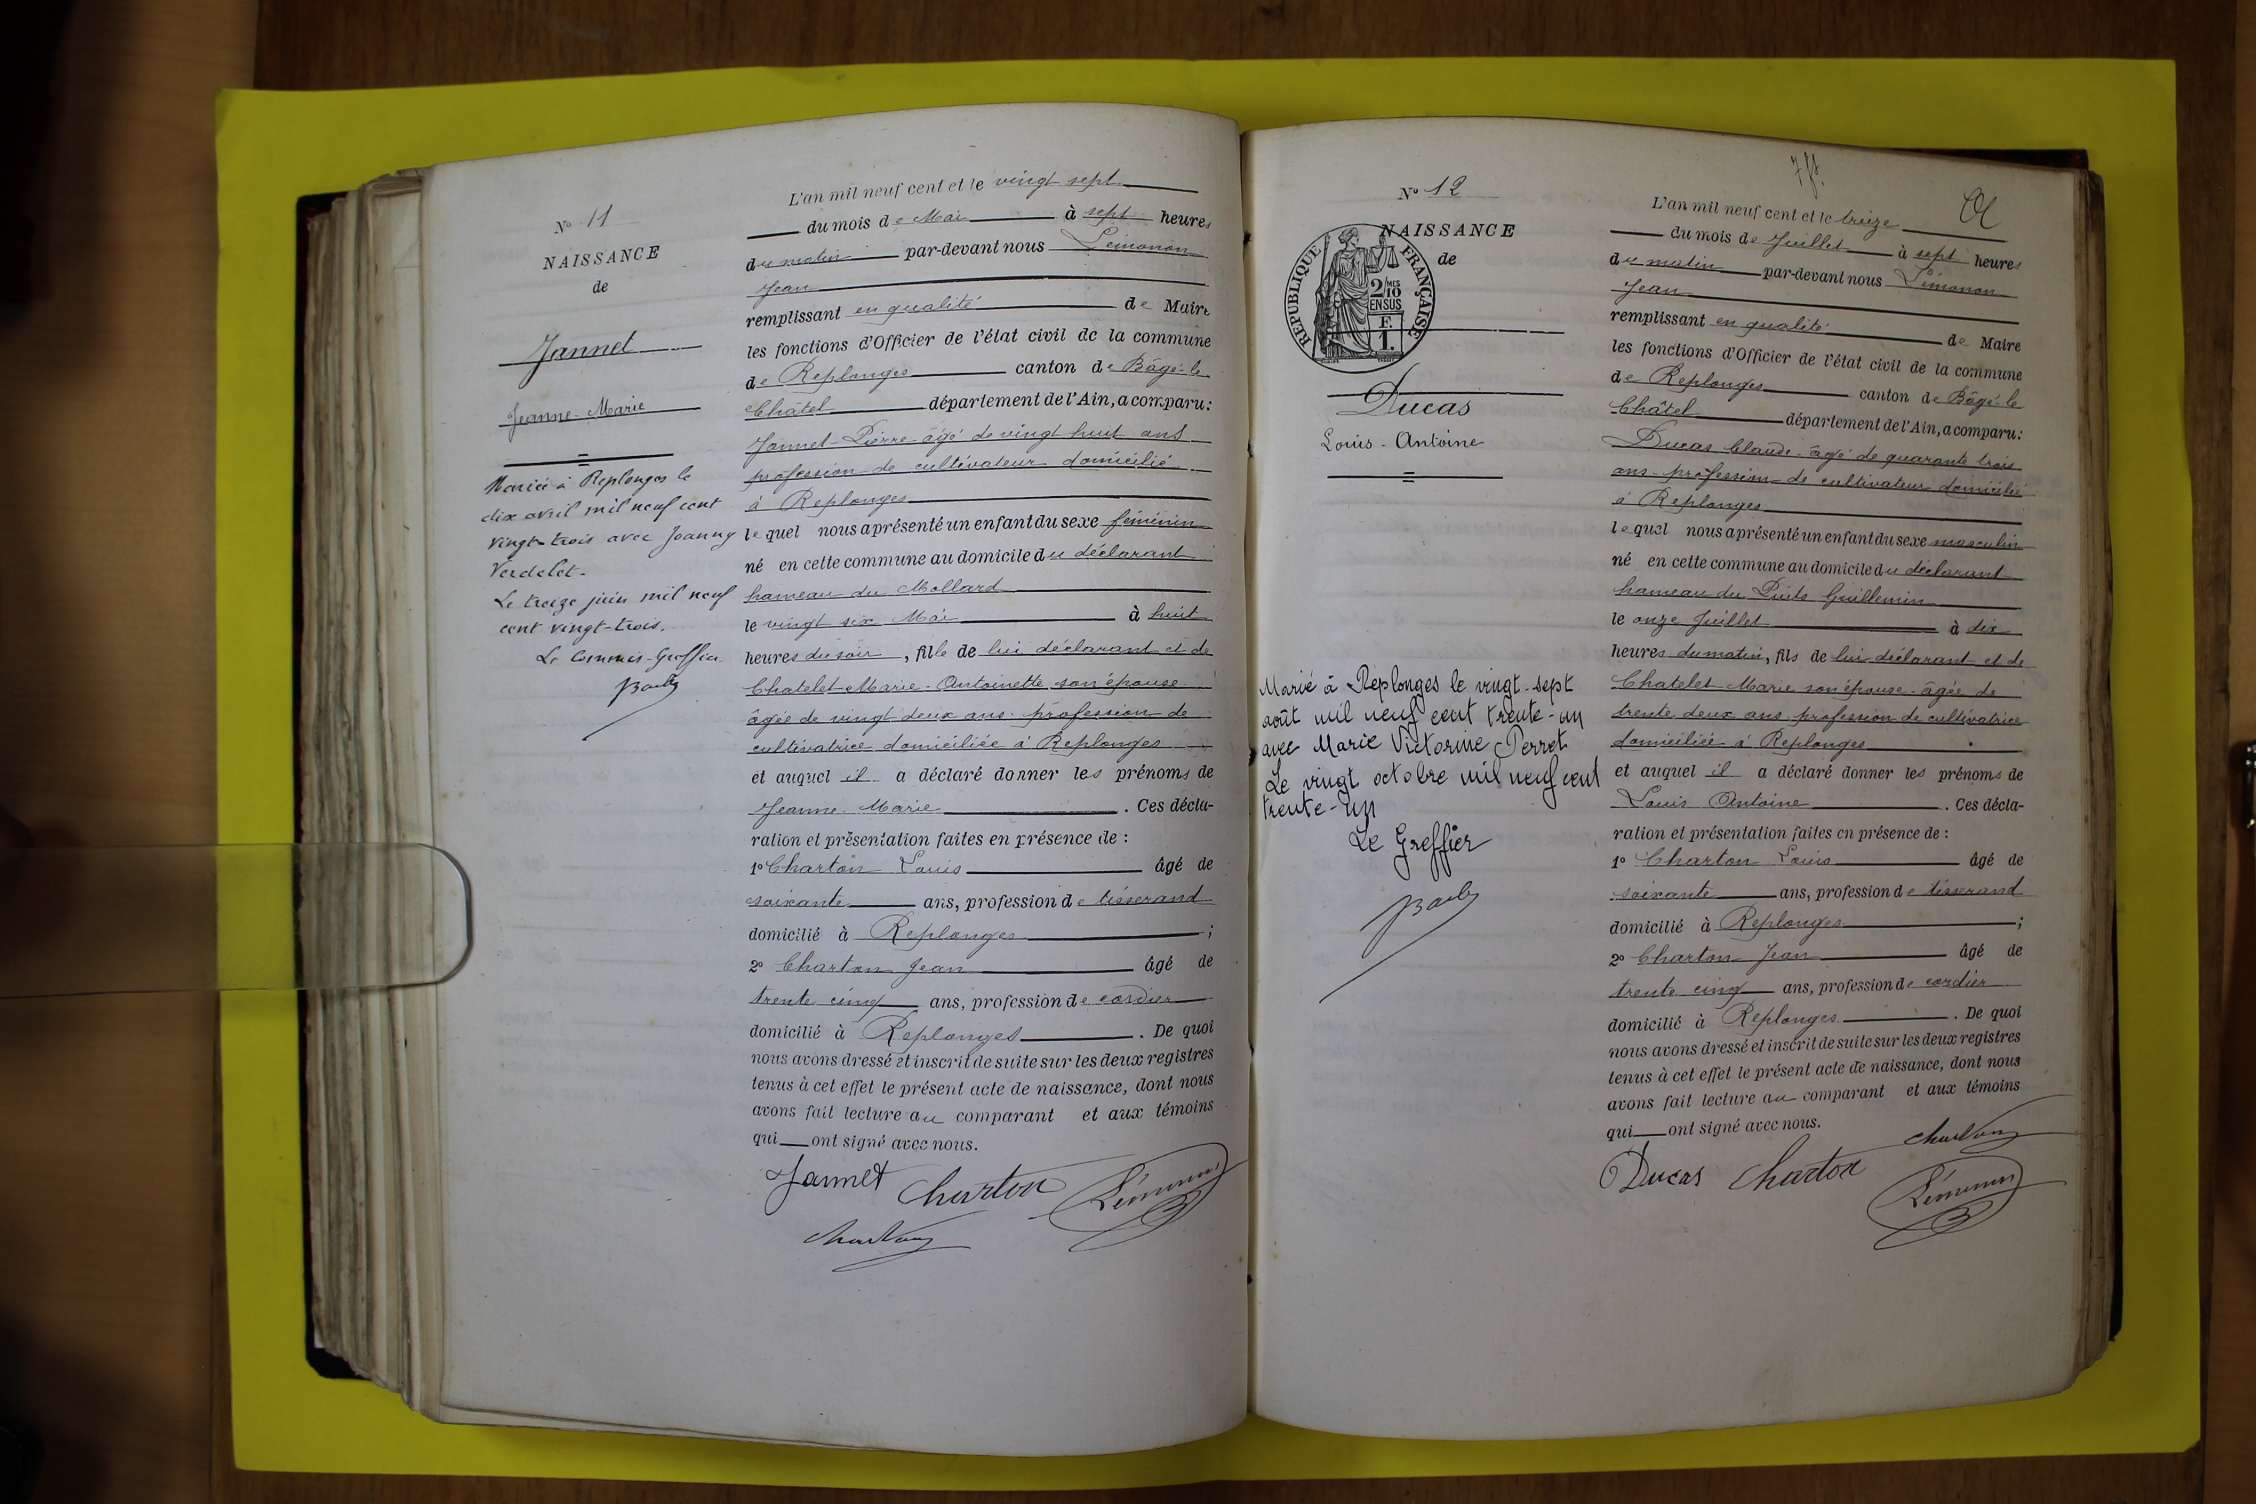 N° 11
NAISSANCE
de
Jannet
Jeanne-Marie
Mariée à Replonges le
dix avril mil neuf cent
vingt-trois avec Joanny
Verdelet.
Le treize juin mil neuf
cent vingt-trois.
Le Commis-Greffier
L'an mil neuf cent et le vingt sept
du mois de Mai à sept heures
du matin par-devant nous Lémonon
Jean
remplissant en qualité de Maire
les fonctions d'Officier de l'état civil de la commune
de Replonges canton de Bâgé-le
Châtel département de l'Ain, a comparu:
Jannet Pierre âgé de vingt huit ans
profession de cultivateur domicilié
à Replonges
lequel nous a présenté un enfant du sexe féminin
né en cette commune au domicile du déclarant
hameau du Mollard
le vingt six Mai à huit
heures du soir, fille de lui déclarant et de
Chatelet Marie-Antoinette son épouse
âgée de vingt deux ans profession de
cultivatrice domiciliée à Replonges
et auquel il a déclaré donner les prénoms de
Jeanne Marie. Ces décla-
ration et présentation faites en présence de:
1° Charton Louis âgé de
soixante ans, profession de tisserand
domicilié à Replonges;
2° Charton Jean âgé de
trente cinq ans, profession de cordier
domicilié à Replonges. De quoi
nous avons dressé et inscrit de suite sur les deux registres
tenus à cet effet le présent acte de naissance, dont nous
avons fait lecture au comparant et aux témoins
qui ont signé avec nous.
Jannet Charton Lémonon
Charton
N° 12
NAISSANCE
de
RÉPUBLIQUE FRANÇAISE
2/10 MES
EN SUS
F.
1.
Ducas
Louis-Antoine
Marié à Replonges le vingt-sept
août mil neuf cent trente-un
avec Marie Victorine Perret
Le vingt octobre mil neuf cent
trente-un
Le Greffier
L'an mil neuf cent et le treize
du mois de Juillet à sept heures
du matin par-devant nous Lémonon
Jean
remplissant en qualité de Maire
les fonctions d'Officier de l'état civil de la commune
de Replonges canton de Bâgé-le
Châtel département de l'Ain, a comparu:
Ducas Claude âgé de quarante trois
ans profession de cultivateur domicilié
à Replonges
lequel nous a présenté un enfant du sexe masculin
né en cette commune au domicile du déclarant
hameau du Puits Guillemin
le onze Juillet à dix
heures du matin, fils de lui déclarant et de
Chatelet Marie son épouse âgée de
trente deux ans profession de cultivatrice
domiciliée à Replonges
et auquel il a déclaré donner les prénoms de
Louis Antoine. Ces décla-
ration et présentation faites en présence de:
1° Charton Louis âgé de
soixante ans, profession de tisserand
domicilié à Replonges;
2° Charton Jean âgé de
trente cinq ans, profession de cordier
domicilié à Replonges. De quoi
nous avons dressé et inscrit de suite sur les deux registres
tenus à cet effet le présent acte de naissance, dont nous
avons fait lecture au comparant et aux témoins
qui ont signé avec nous.
Charton
Ducas Charton Lémonon